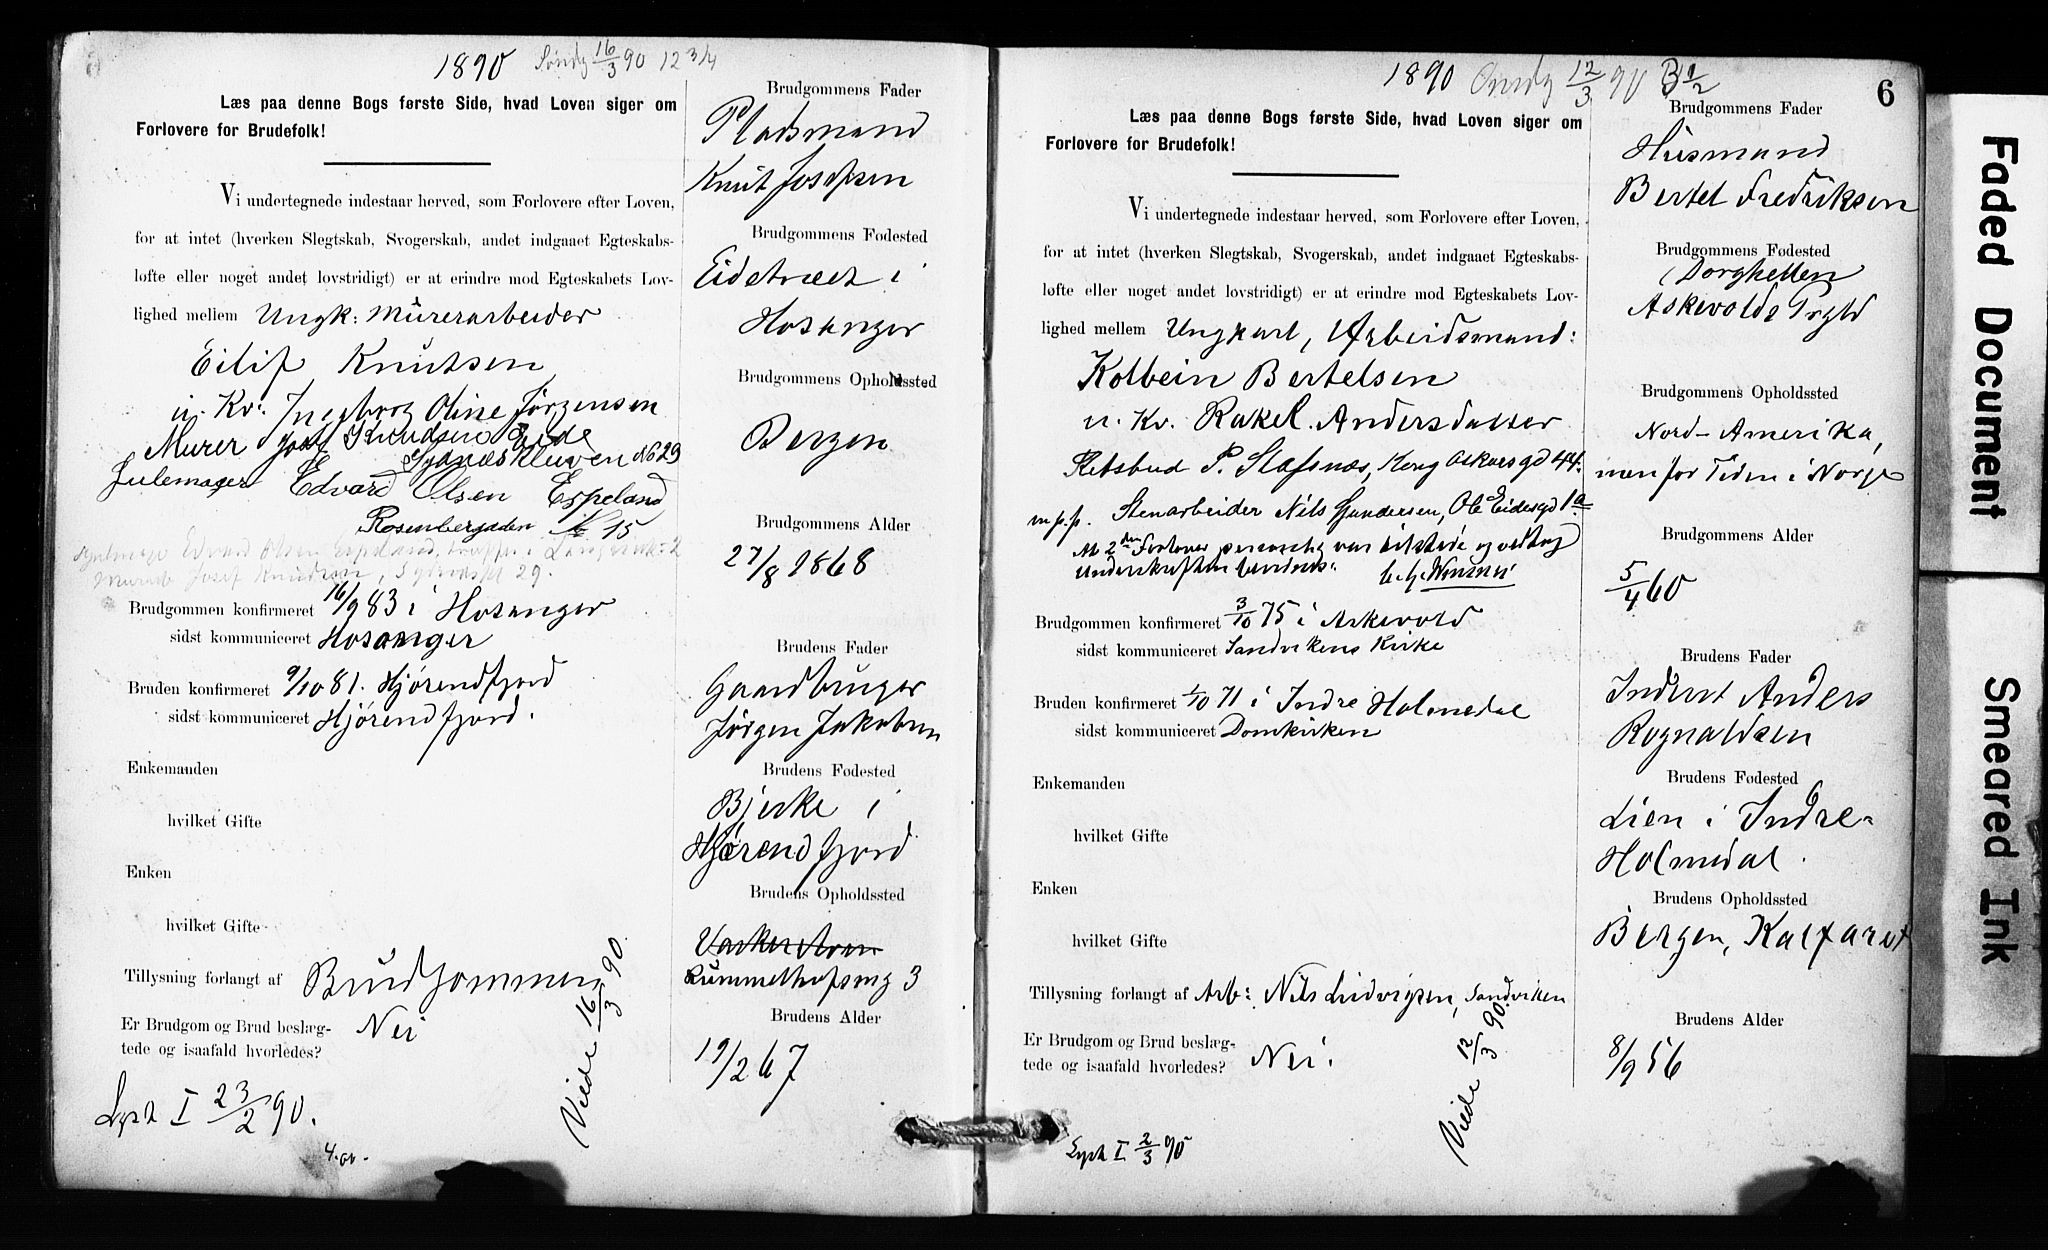 1890 Søndg 16/3 90 12 3/4
Læs paa denne Bogs første Side, hvad Loven siger om
Forlovere for Brudefolk!
Vi undertegnede indestaar herved, som Forlovere efter Loven,
for at intet (hverken Slegtskab, Svogerskab, andet indgaaet Egteskabs-
løfte eller noget andet lovstridigt) er at erindre mod Egteskabets Lov-
lighed mellem Ungk: Murerarbeider
Eilif Knutsen
u. Kv: Ingeborg Oline Jørgensen
Murer Josef Knudsen Eide
Sydnæskleven No 29
Edvard Olsen Espeland
Rosenbergaden № 15
Edvard Olsen Espeland,
Josef Knudsen, 29.
Brudgommen konfirmeret 16/9 83 i Hosanger
sidst kommuniceret Hosanger
Bruden konfirmeret 9/10 81. Hjørendfjord
sidst kommuniceret Hjørendfjord.
Enkemanden
hvilket Gifte
Enken
hvilket Gifte
Tillysning forlangt af Brudgommen
Er Brudgom og Brud beslæg-
tede og isaafald hvorledes? Nei
Viede 16/3 90
Lyst I 23/2 90.
Brudgommens Fader
Pladsmand
Knut Josefsen
Brudgommens Fødested
Eidetræet i
Hosanger
Brudgommens Opholdssted
Bergen
Brudgommens Alder
27/8 1868
Brudens Fader
Gaardbruger
Jørgen Jakobsen
Brudens Fødested
Bjerke i
Hjørendfjord
Brudens Opholdssted
3
Brudens Alder
19/2 67
1890 Onsdg 12/3 90 3 1/2
6
Læs paa denne Bogs første Side, hvad Loven siger om
Forlovere for Brudefolk!
Vi undertegnede indestaar herved, som Forlovere efter Loven,
for at intet (hverken Slegtskab, Svogerskab, andet indgaaet Egteskabs-
løfte eller noget andet lovstridigt) er at erindre mod Egteskabets Lov-
lighed mellem Ungkarl, Arbeidsmand:
Kolbein Bertelsen
u. Kv. Rakel Andersdatter
Retsbud P. Stafsnæs, Kong Oskarsgd 44.
m.p.p. Stenarbeider Nils Gundersen, Ole Eidesgd 1a
At 2den Forlover personlig var tilstede og vedtog
Underskriften bevidnes:
Brudgommen konfirmeret 3/10 75 i Askevold
sidst kommuniceret Sandvikens Kirke
Bruden konfirmeret 1/10 71 i Indre Holmedal
sidst kommuniceret Domkirken
Enkemanden
hvilket Gifte
Enken
hvilket Gifte
Tillysning forlangt af Arb: Nils Ludvigsen, Sandviken
Er Brudgom og Brud beslæg-
tede og isaafald hvorledes? Nei.
Viede 12/3 90.
Lyst I 2/3 90
Brudgommens Fader
Husmand
Bertel Fredriksen
Brudgommens Fødested
Askevolds Prgld
Brudgommens Opholdssted
Nord-Amerika,
men for Tiden i Norge
Brudgommens Alder
5/4 60
Brudens Fader
Inderst Anders
Rognaldsen
Brudens Fødested
Lien i Indre-
Holmedal.
Brudens Opholdssted
Bergen, Kalfaret
Brudens Alder
8/9 56
Faded Document
Smeared Ink